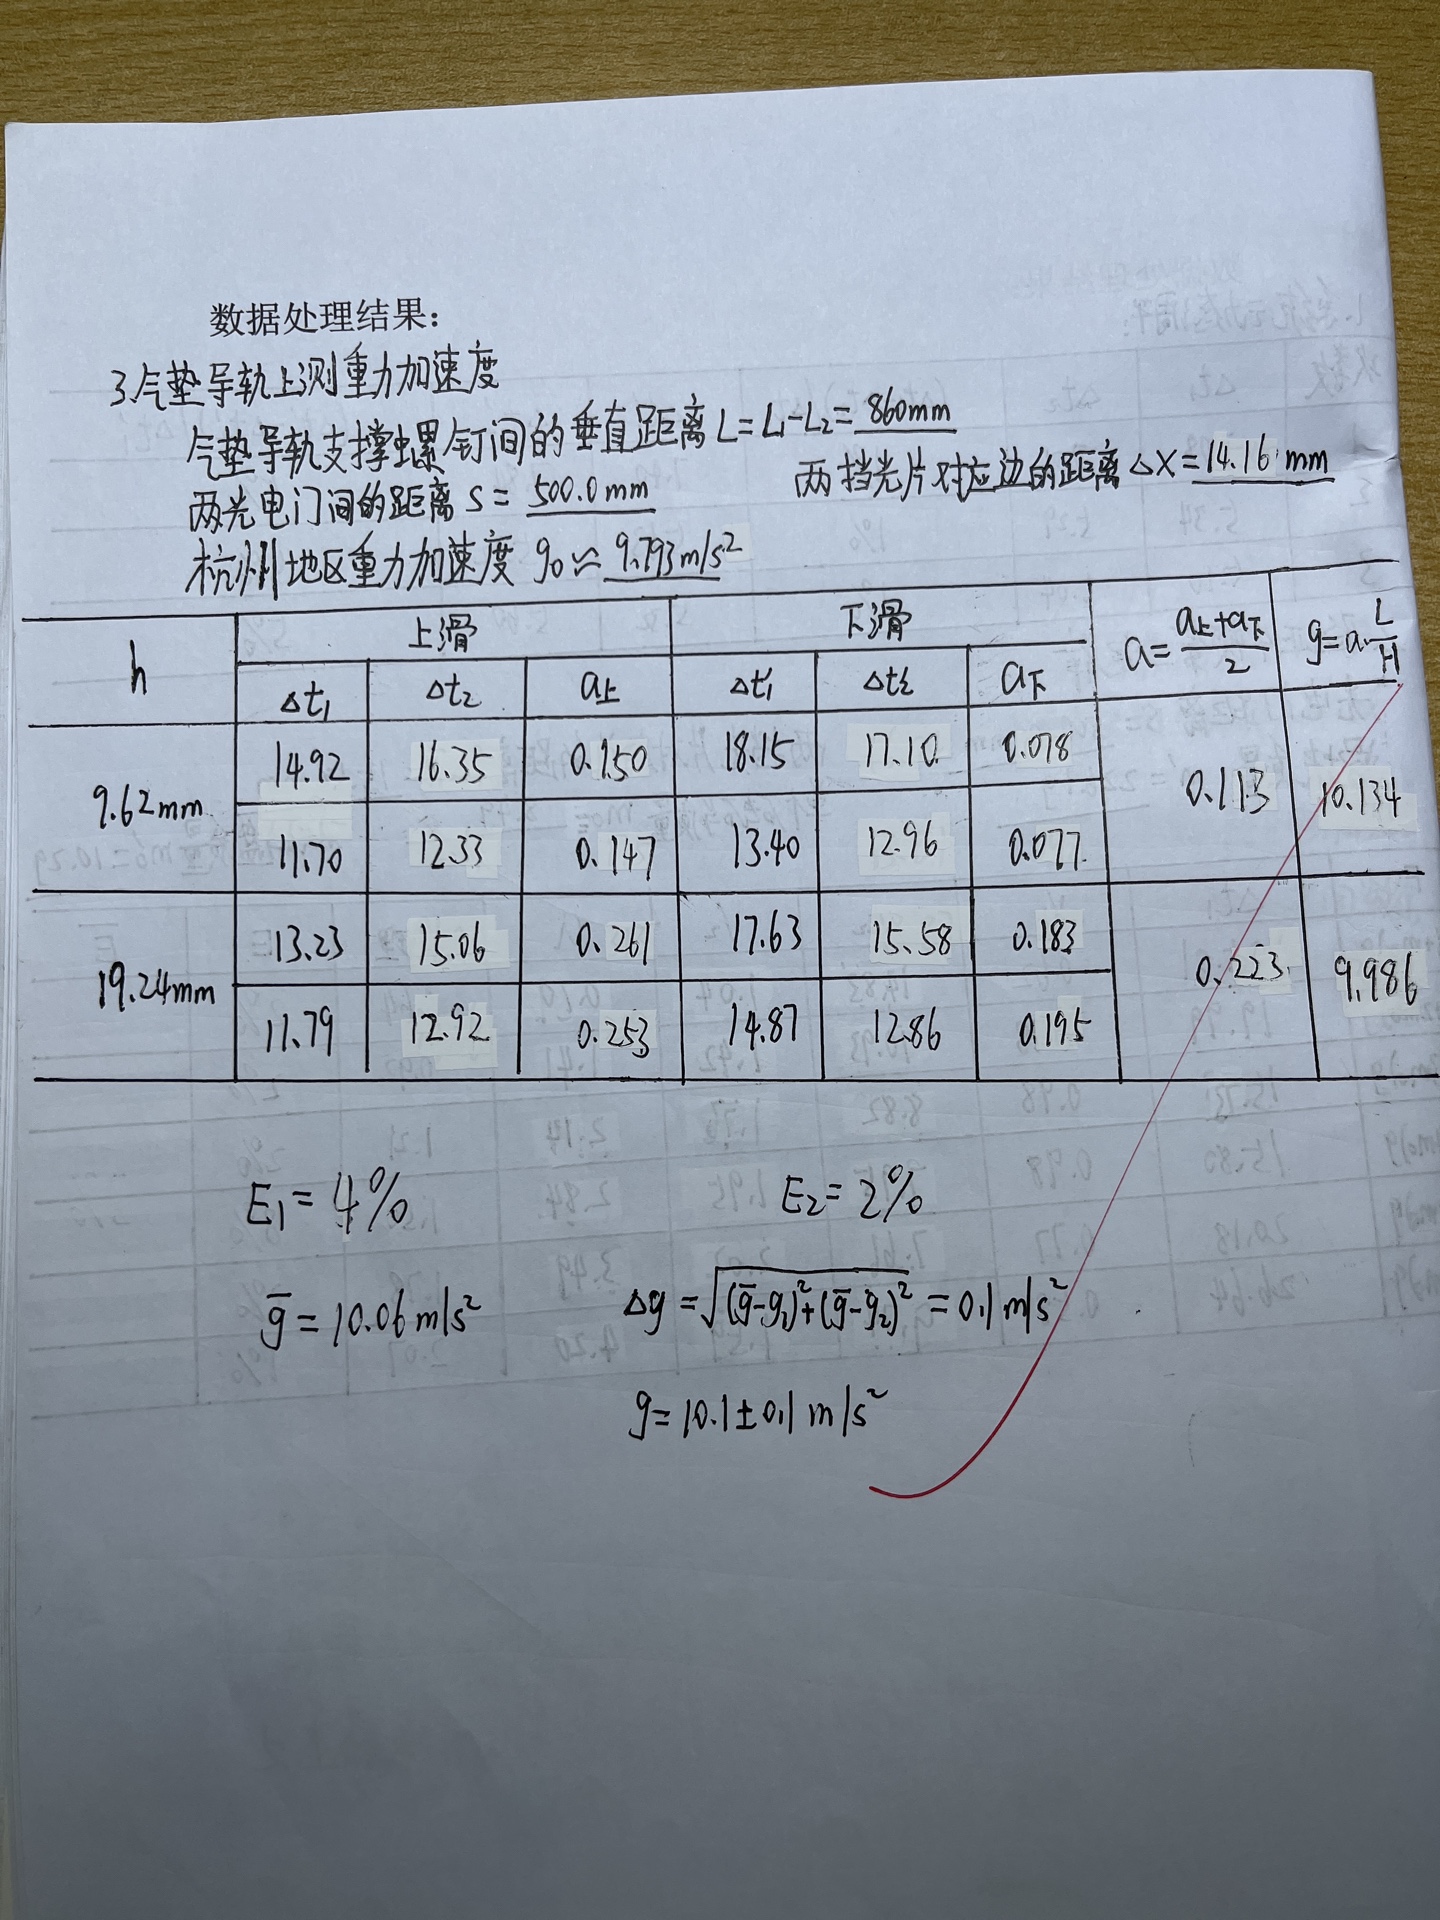 数据处理结果：
3.气垫导轨上测重力加速度
气垫导轨支撑螺钉间的垂直距离 L=L₁-L₂=860mm
两光电门间的距离 S= 500.0mm 两挡光片对应边的距离 ΔX=14.16mm
杭州地区重力加速度 g₀≈9.793m/s²
h 上滑 下滑 a=(a上+a下)/2 g=a·L/H
Δt₁ Δt₂ a上 Δt₁' Δt₂' a下
9.62mm 14.92 16.35 0.150 18.15 17.10 0.078 0.113 10.134
11.70 12.33 0.147 13.40 12.96 0.077
19.24mm 13.23 15.06 0.261 17.63 15.58 0.183 0.223 9.986
11.79 12.92 0.253 14.87 12.86 0.195
E₁=4% E₂=2%
g̅=10.06m/s² Δg=√((g̅-g₁)²+(g̅-g₂)²)=0.1m/s²
g=10.1±0.1m/s²